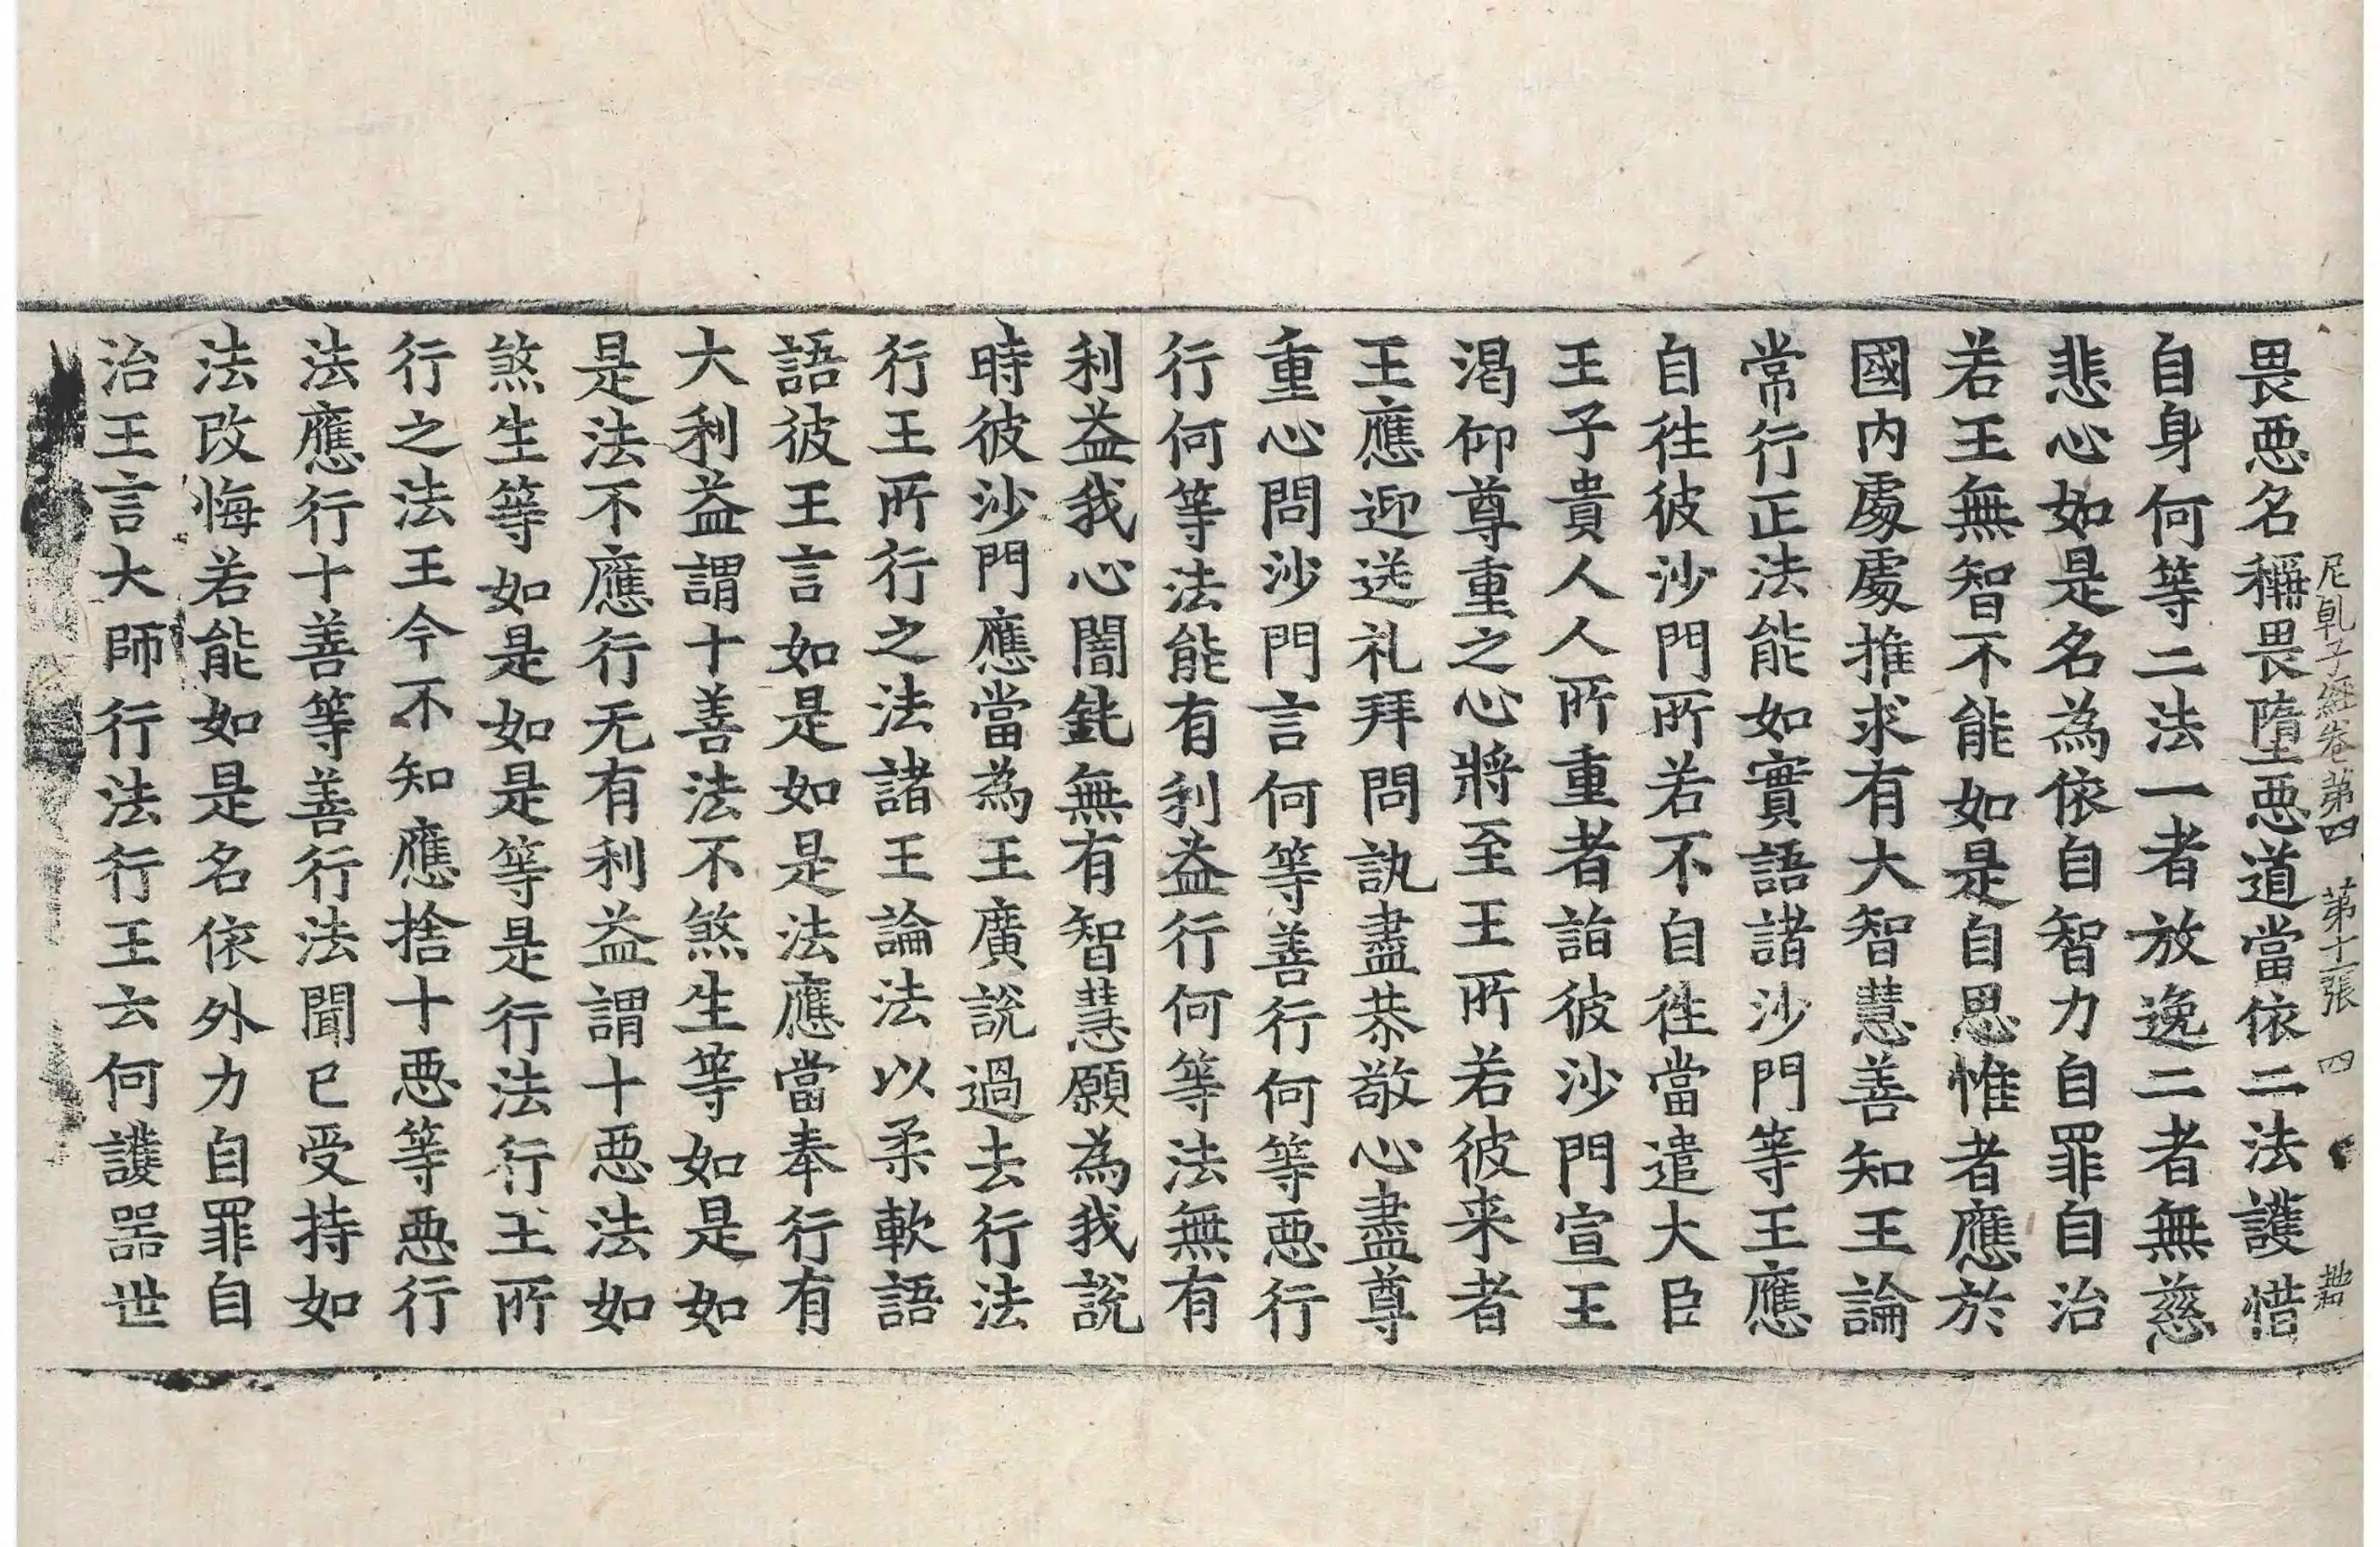 尼乹子經卷第四 第十二張 四
畏惡名稱畏墮惡道當依二法護惜
自身何等二法一者放逸二者無慈
悲心如是名為依自智力自罪自治
若王無智不能如是自思惟者應於
國内處處推求有大智慧善知王論
常行正法能如實語諸沙門等王應
自往彼沙門所若不自往當遣大臣
王子貴人人所重者詣彼沙門宣王
渴仰尊重之心將至王所若彼来者
王應迎送礼拜問訊盡恭敬心盡尊
重心問沙門言何等善行何等惡行
行何等法能有利益行何等法無有
利益我心闇鈍無有智慧願為我說
時彼沙門應當為王廣說過去行法
行王所行之法諸王論法以柔軟語
語彼王言如是如是法應當奉行有
大利益謂十善法不煞生等如是如
是法不應行无有利益謂十惡法如
煞生等如是如是等是行法行王所
行之法王今不知應捨十惡等惡行
法應行十善等善行法聞已受持如
法改悔若能如是名依外力自罪自
治王言大師行法行王云何護器世